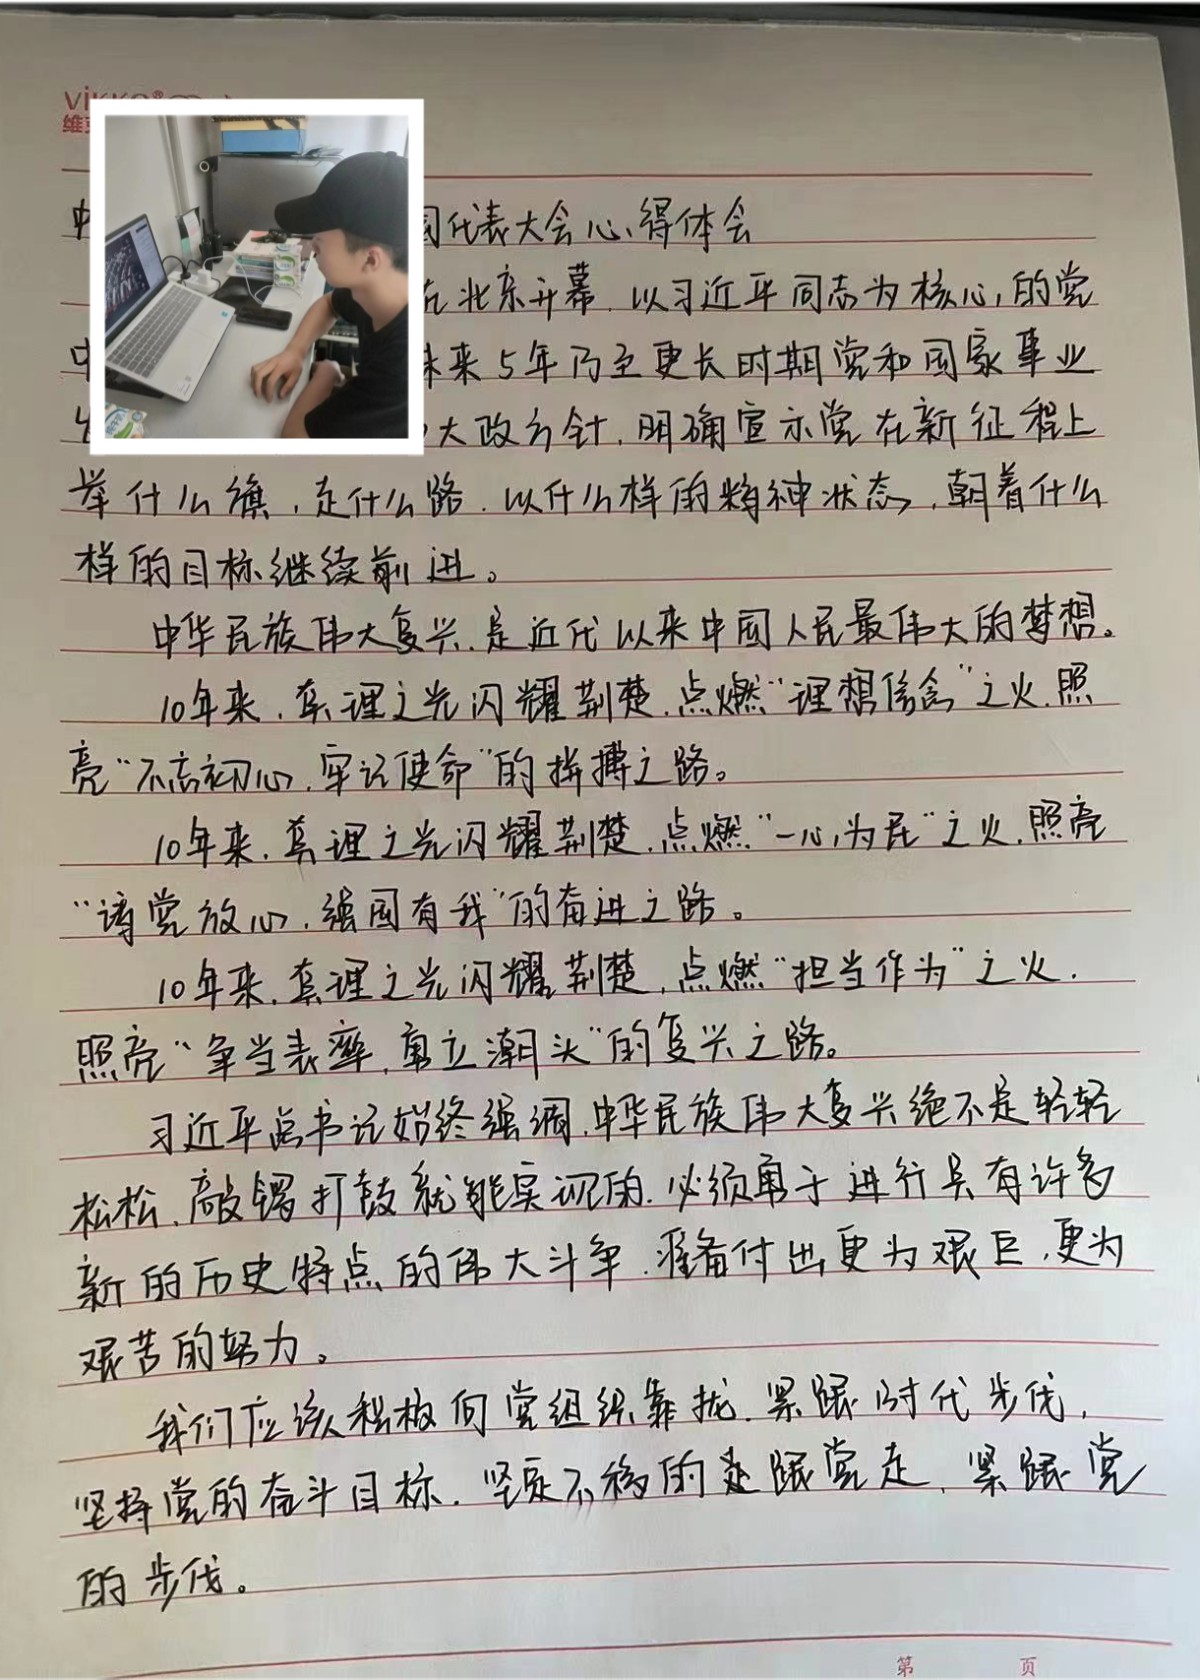 维
中 国代表大会心得体会
在北京开幕,以习近平同志为核心的党
中 未来5年乃至更长时期党和国家事业
大政方针,明确宣示党在新征程上
举什么旗,走什么路,以什么样的精神状态,朝着什么
样的目标继续前进。
中华民族伟大复兴,是近代以来中国人民最伟大的梦想。
10年来,真理之光闪耀荆楚,点燃“理想信念”之火,照
亮“不忘初心,牢记使命”的拼搏之路。
10年来,真理之光闪耀荆楚,点燃“一心为民”之火,照亮
“请党放心,强国有我”的奋进之路。
10年来,真理之光闪耀荆楚,点燃“担当作为”之火,
照亮“争当表率,勇立潮头”的复兴之路。
习近平总书记始终强调,中华民族伟大复兴绝不是轻轻
松松,敲锣打鼓就能实现的,必须勇于进行具有许多
新的历史特点的伟大斗争,准备付出更为艰巨,更为
艰苦的努力。
我们应该积极向党组织靠拢,紧跟时代步伐,
坚持党的奋斗目标,坚定不移的走跟党走,紧跟党
的步伐。
第 页